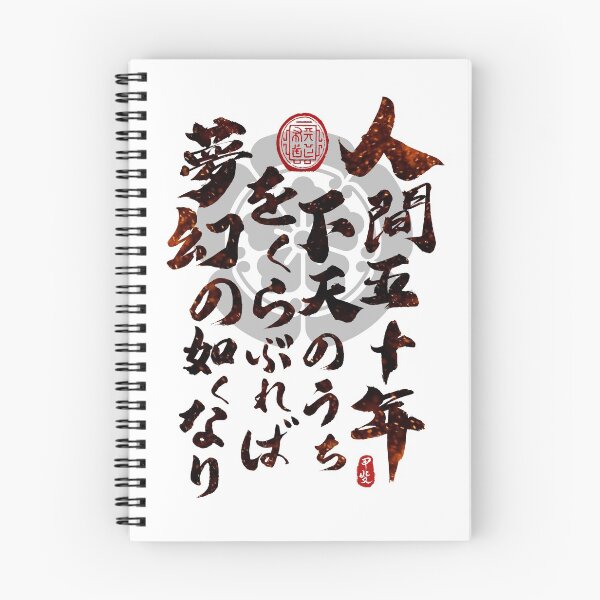 人間五十年
下天のうち
をくらぶれば
夢幻の如くなり
甲斐